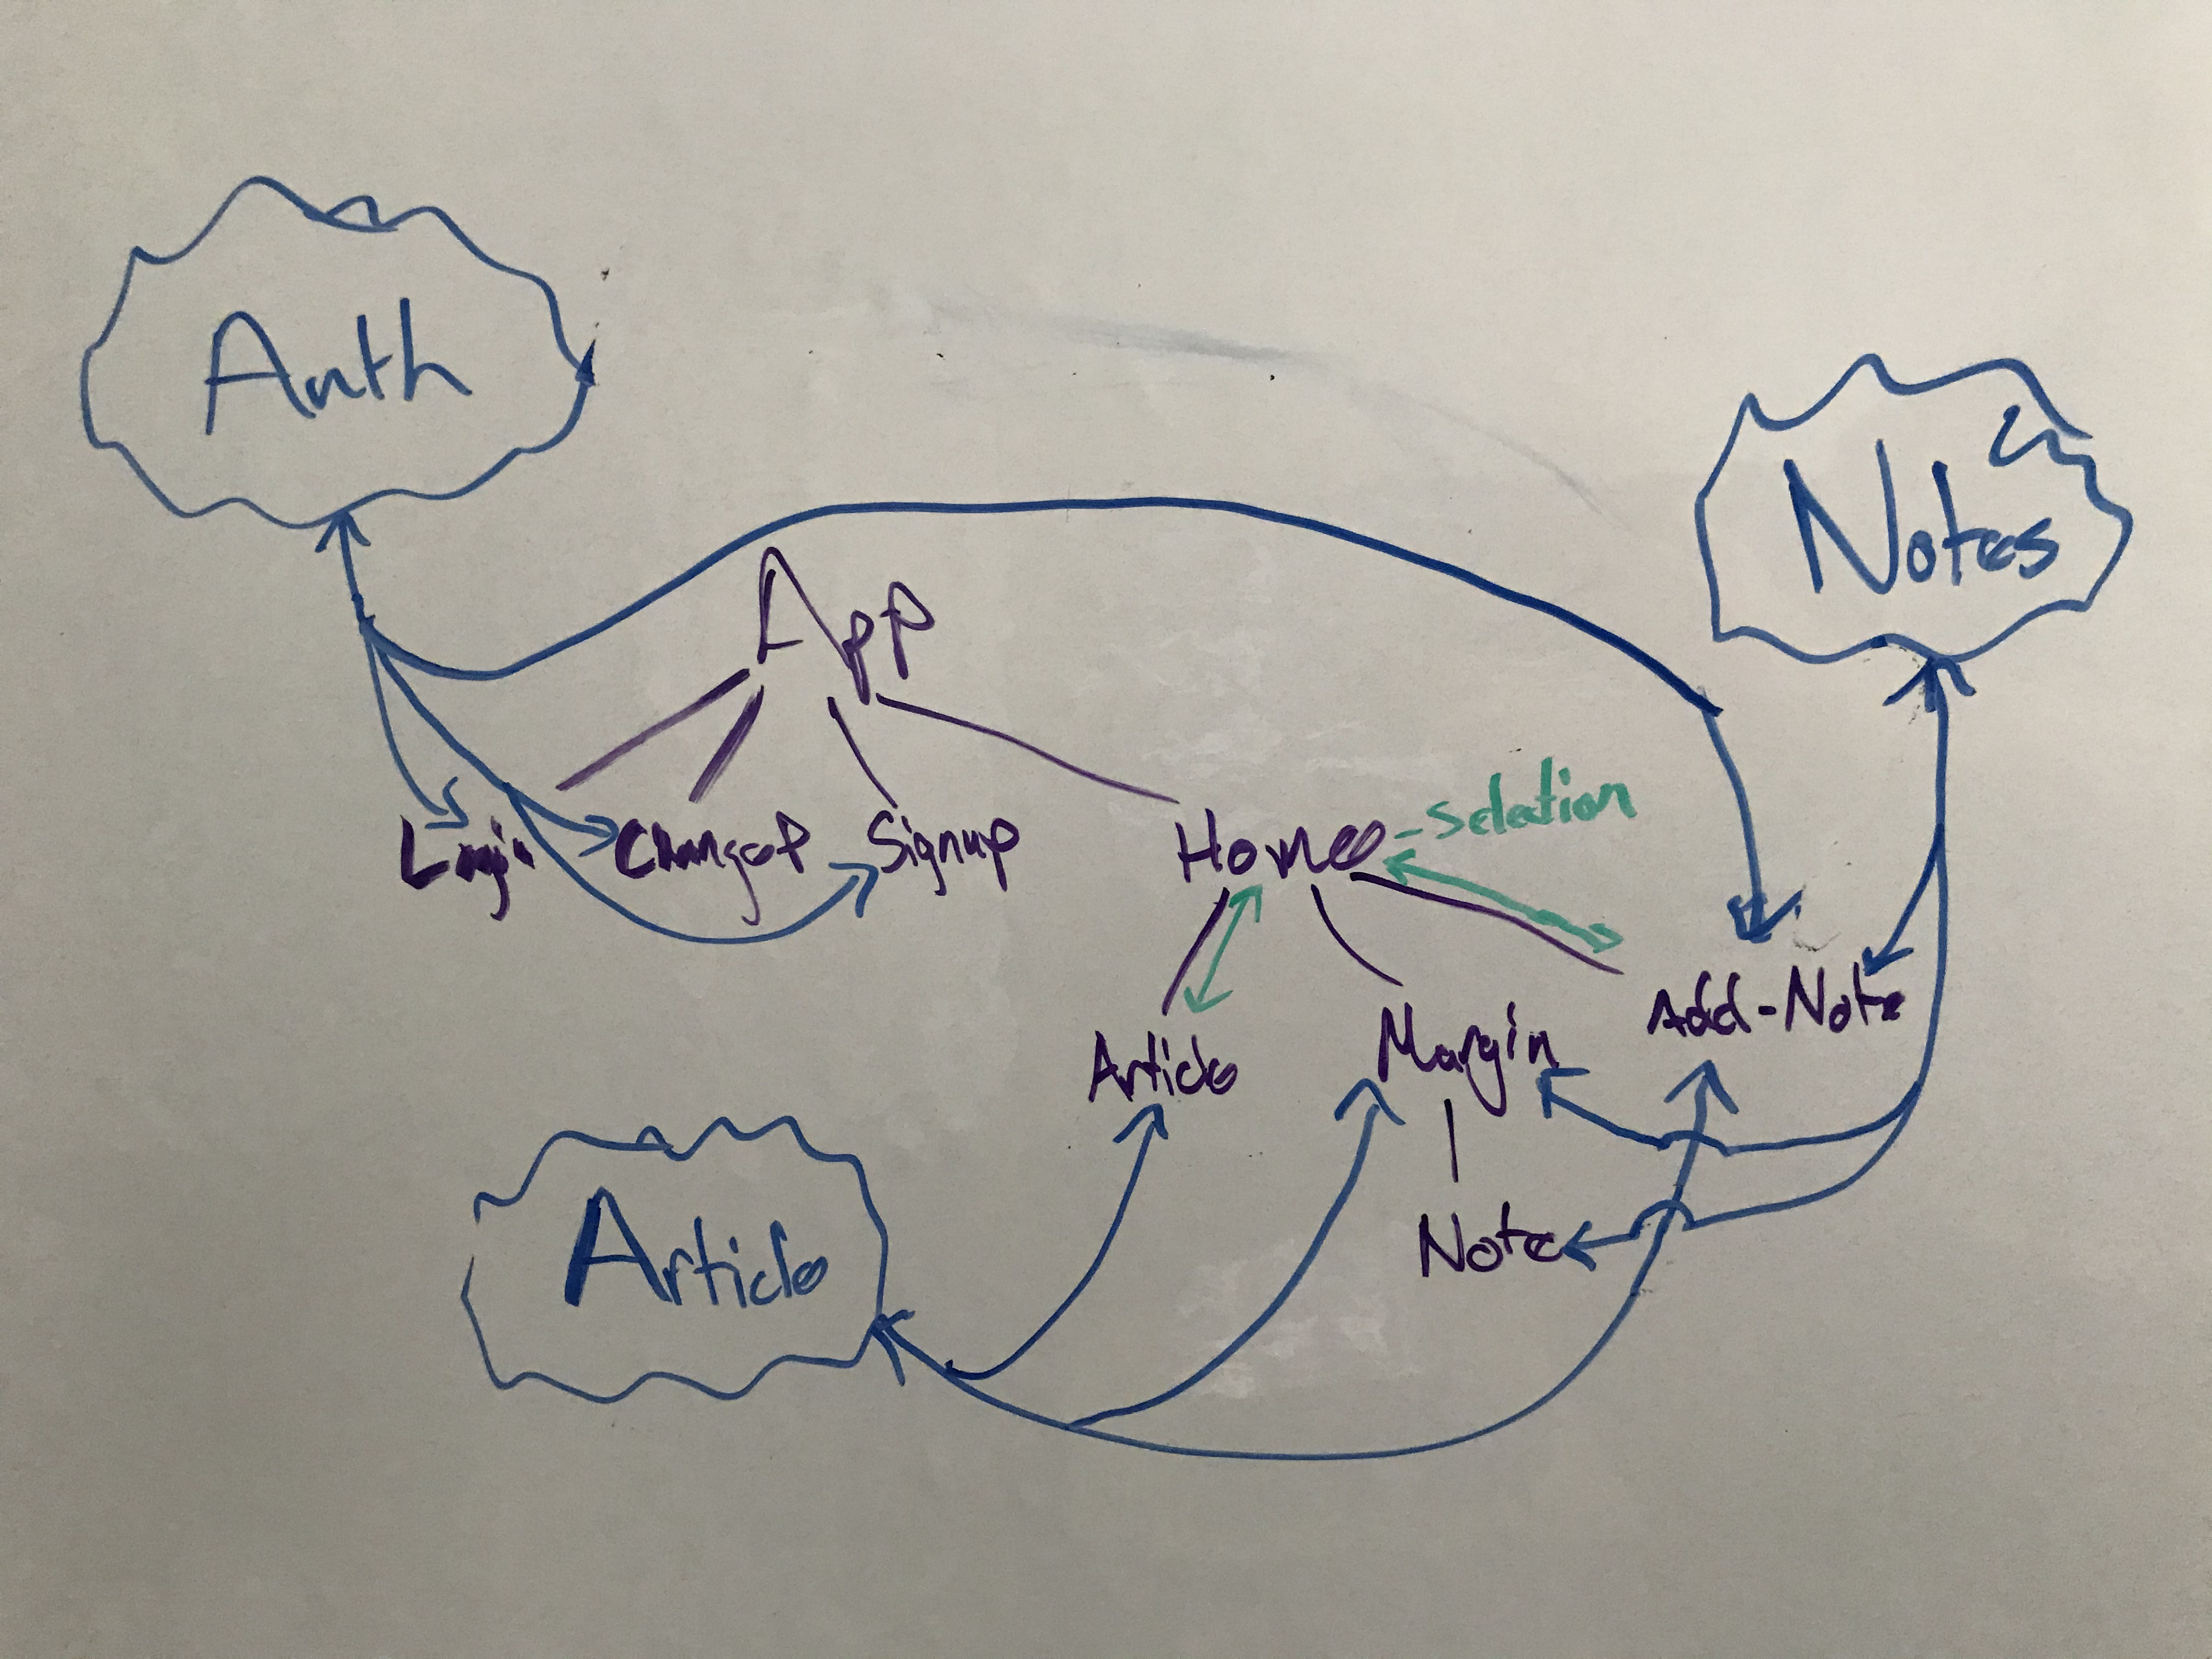 Auth
Notes
App
Login
ChangeP
Signup
Home
- Selection
Article
Margin
Add-Note
Note
Article